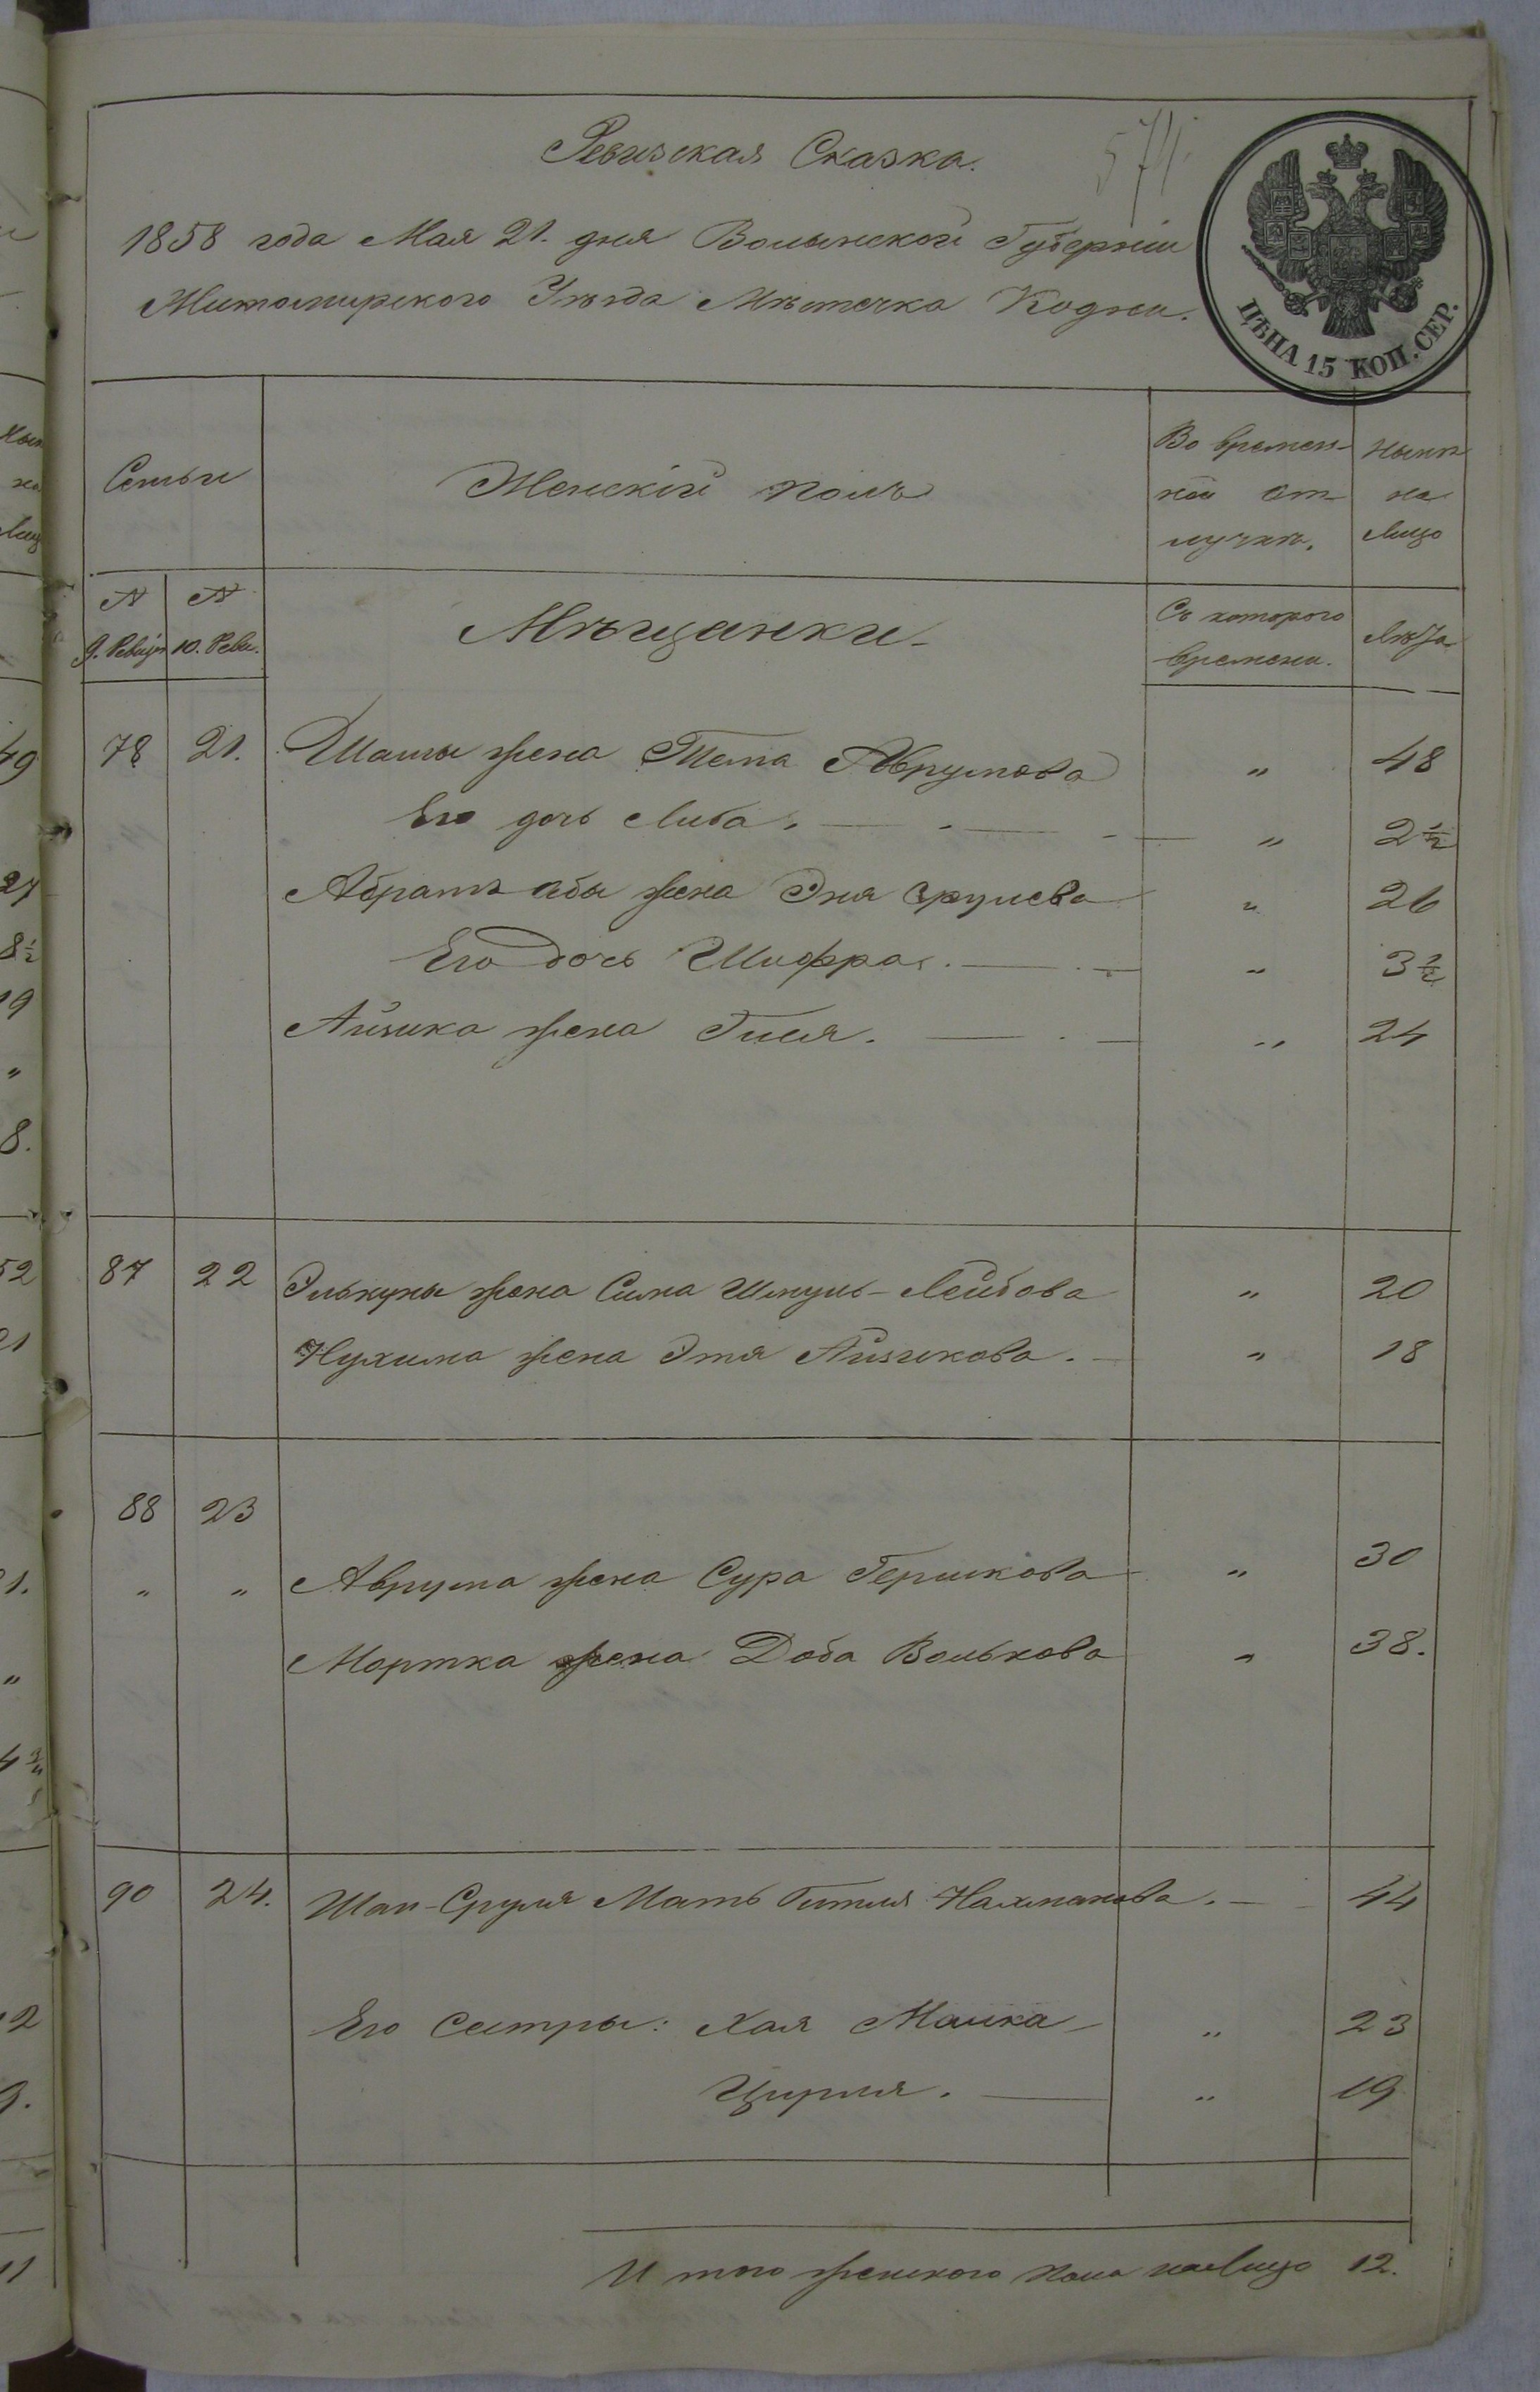 Ревизская Сказка.
574.
1858 года Мая 21. дня Волынской Губерніи
Житомирского Уѣзда Мѣстечка Кодни.
ЦѢНА 15 КОП. СЕР.
Семьи
Женскій полъ
Во времен-
ной от-
лучкѣ.
Нынѣ
на
Лицо
№
9. Ревизіи
№
10. Реви.
Мѣщанки
Съ которого
времени.
Лѣта
78 21. жена Тема Аврумова " 48
Его дочь Либа. " 2 1/2
Абрамъ Абы жена Эня Срулева " 26
Его дочь Шифра. " 3 1/2
Айзика жена " 24
87 22 Элькуны жена Сима Шмуль-Лейбова " 20
Нухима жена Этя Айзикова. " 18
88 23
" " Аврума жена Сура Гершкова " 30
Мортка жена Доба Волькова " 38.
90 24. Сруля Мать Гитля Нахманова. 44
Его Сестры: Хая Малка " 23
Цирля. " 19
Итого женского пола налицо 12.